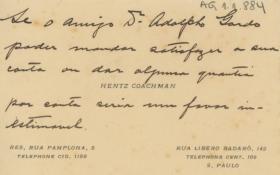 AG 1.1.884
Se o Amigo Dr. Adolpho Gordo
poder mandar satisfazer a sua
conta ou dar alguma quantia
HENTZ COACHMAN
por conta seria um favor in-
estimavel.
RES. RUA PAMPLONA, 5
TELEPHONE CID. 1186
RUA LIBERO BADARÓ, 142
TELEPHONE CENT. 109
S. PAULO